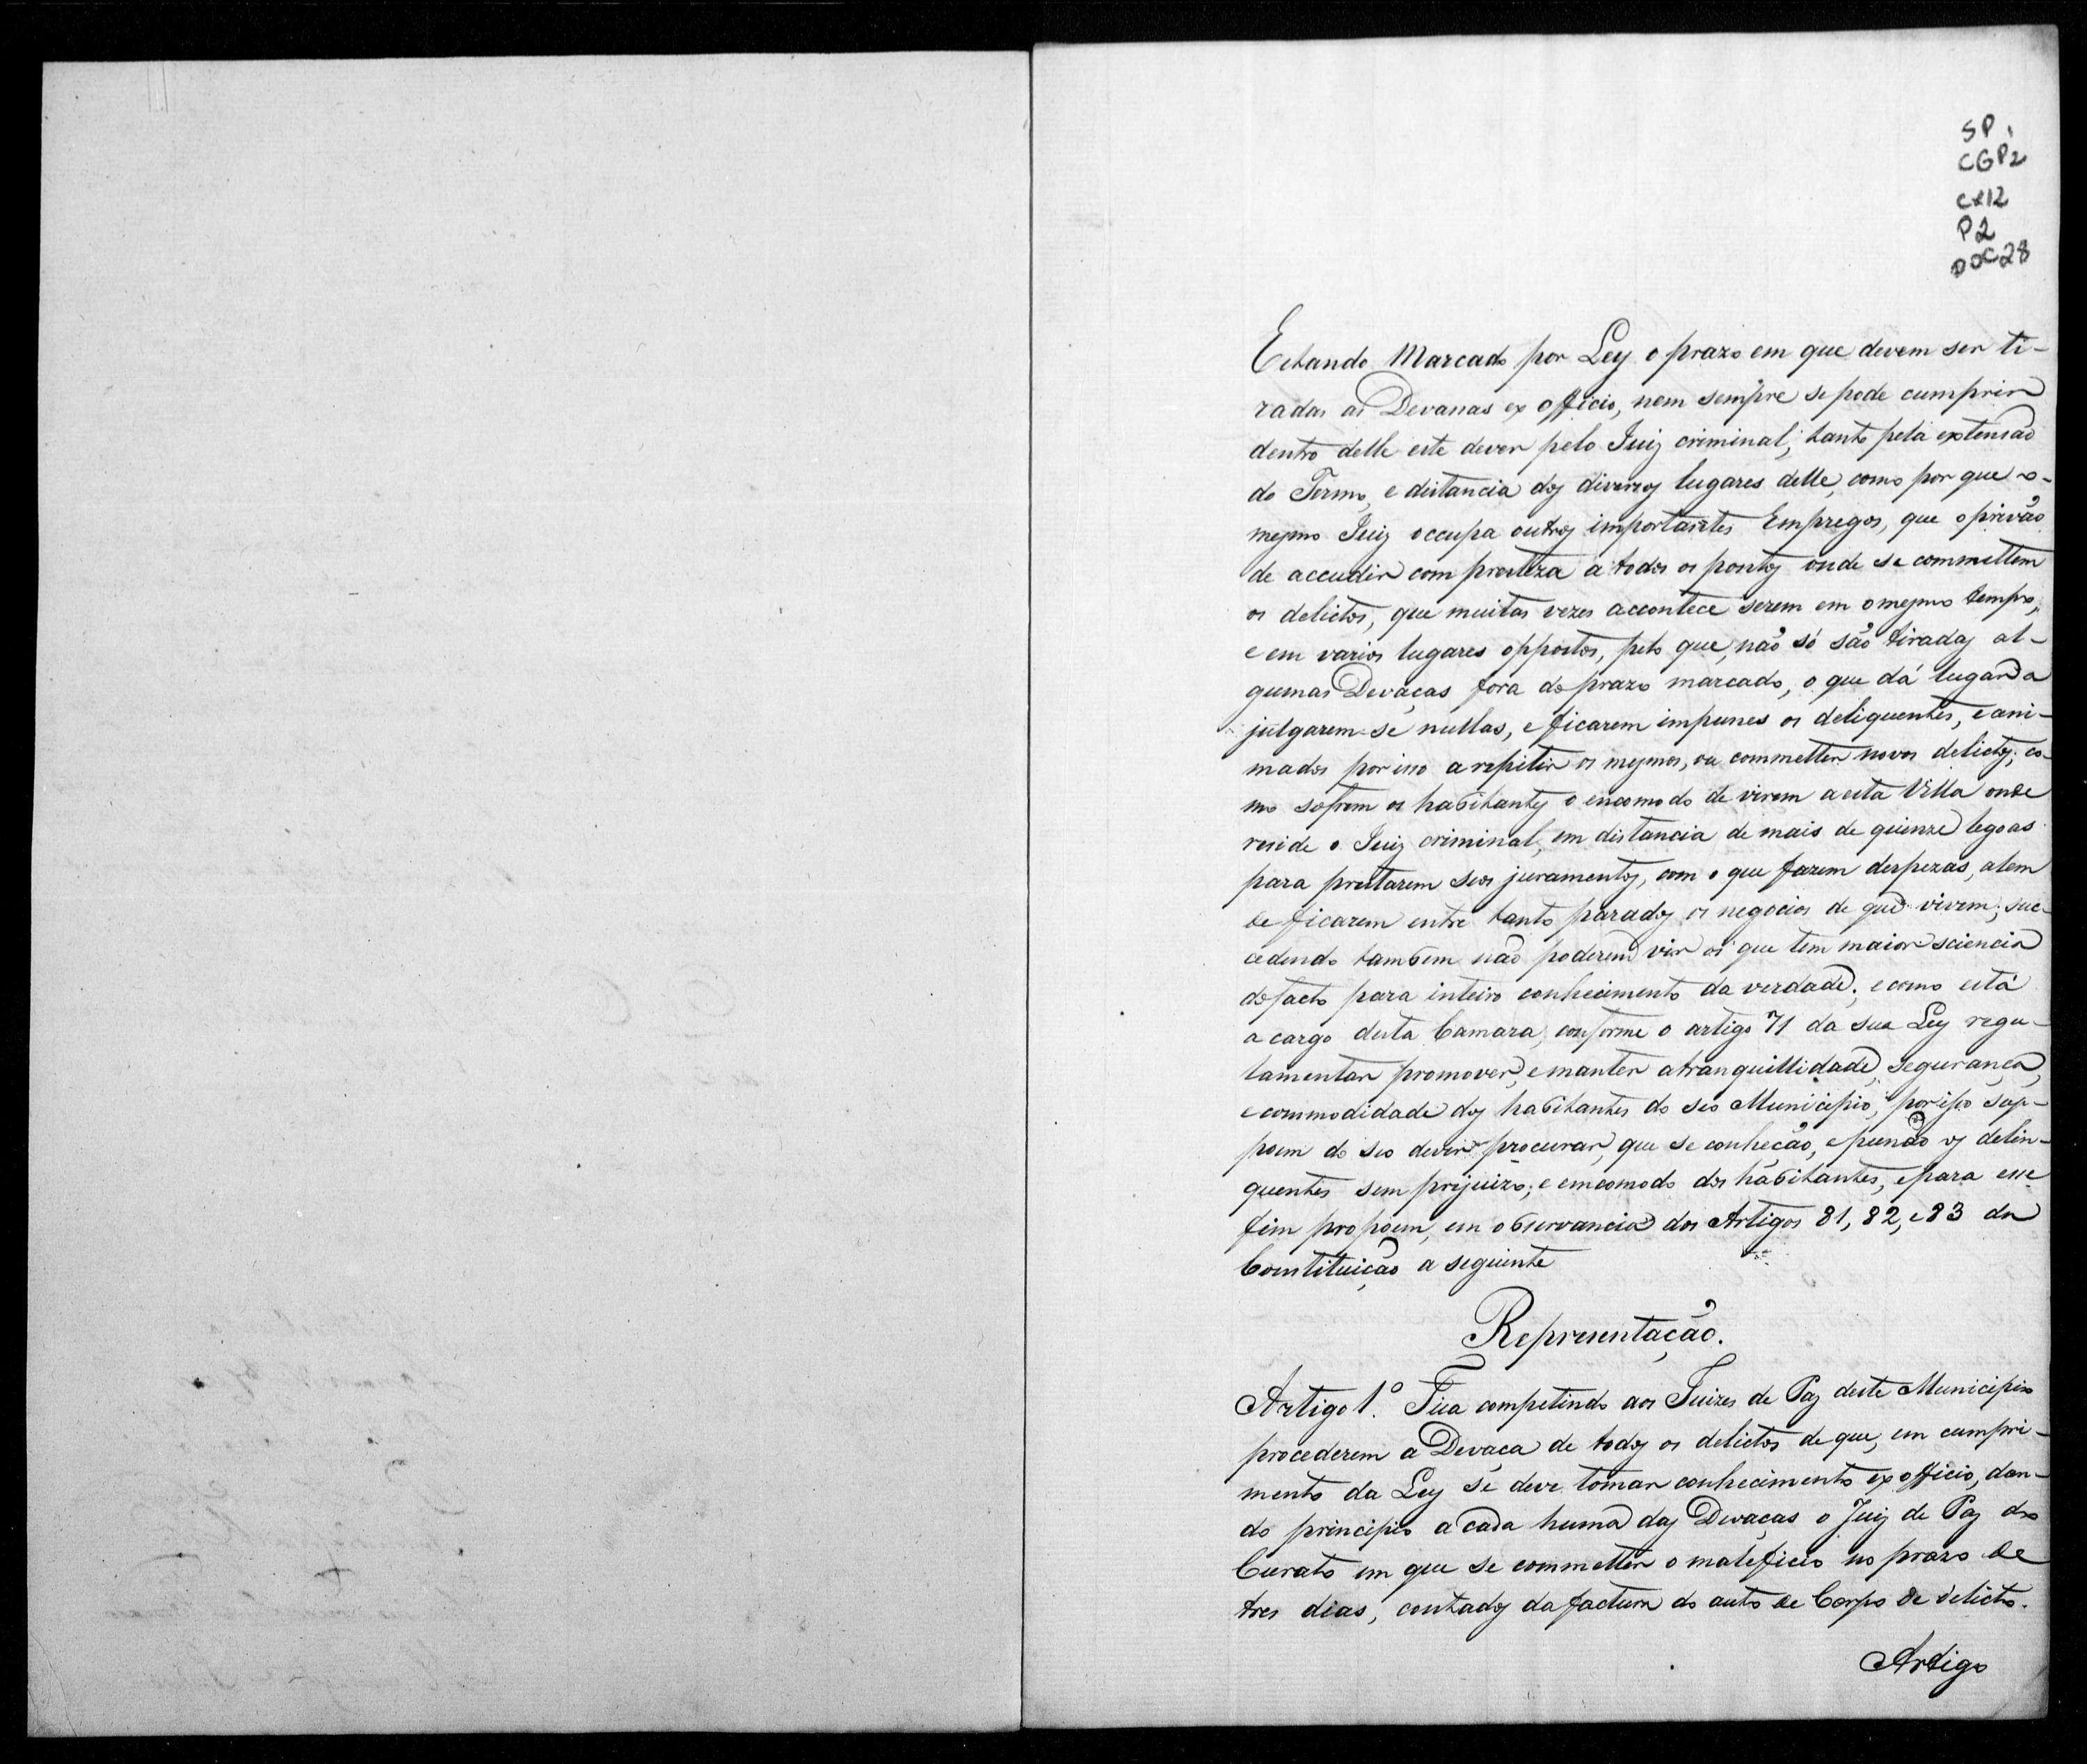 SP
CGP2
cx12
P2
DOC28
Estando Marcado por Ley o prazo em que devem ser ti-
radas as Devanas ex officio, nem sempre se pode cumprir
dentro delle este dever pelo Juiz criminal, tanto pela extensão
do Termo, e distancia dos diversos lugares delle, como por que o
mesmo Juiz occupa outros importantes Empregos, que o privão
de accudir com presteza a todos os pontos onde se commettem
os delictos, que muitas vezes accontece serem em o mesmo tempo,
e em varios lugares oppostos, pelo que, não só são tiradas al-
gumas Devaças fora do prazo marcado, o que dá lugar a
julgarem-se nullas, e ficarem impunes os deliquentes, e ani-
mados por isso a repitir os mesmos, ou commetter novos delictos; co-
mo sofrem os habitantes o encomodo de virem a esta Villa onde
reside o Juiz criminal, em distancia de mais de quinze legoas
para prestarem seos juramentos, com o que fazem despezas, alem
de ficarem entre tanto parados os negocios de que vivem; suc-
cedendo tambem não poderem vir os que tem maior sciencia
do facto para inteiro conhecimento da verdade; e como está
a cargo desta Camara, conforme o artigo 71 da sua Ley regu-
lamentar promover, e manter a tranquillidade, segurança,
e commodidade dos habitantes do seo Municipio, por isso sup-
poem do seo dever procurar, que se conheção, e punão os delin-
quentes sem prejuizo, e emcomodo dos habitantes, e para esse
fim propoem, em observancia dos Artigos 81, 82, e 83 da
Constituição a seguinte
Representação.
Artigo 1.º Fica competindo aos Juizes de Paz deste Municipio
procederem a Devaça de todos os delictos de que, em cumpri-
mento da Ley se deve tomar conhecimento ex officio, dan-
do principio a cada huma das Devaças o Juiz de Paz do
Curato em que se commetter o maleficio no prazo de
tres dias, contados da factura do auto de Corpo de delicto.
Artigo